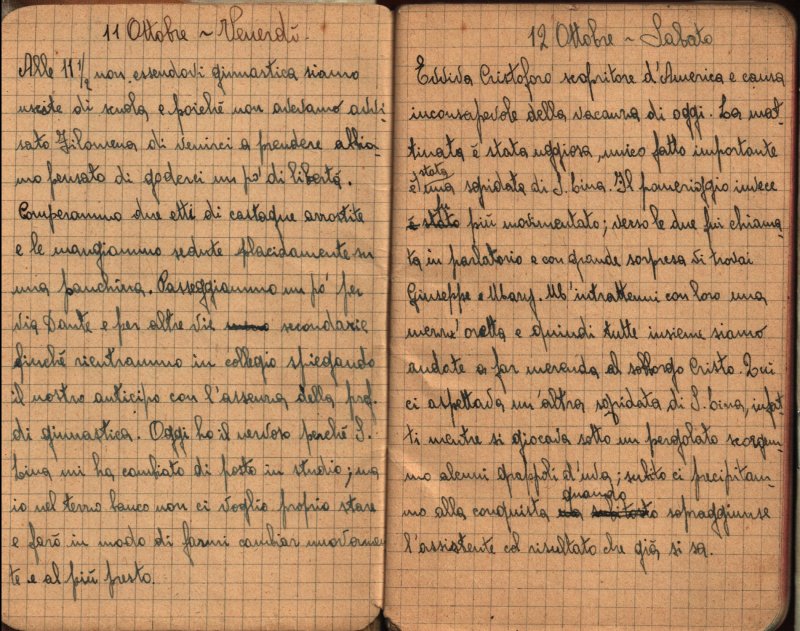 11 Ottobre ~ Venerdì.
Alle 11 1/2 non essendovi ginnastica siamo
uscite di scuola e poiché non avevamo avvi-
sato Filomena di venirci a prendere abbia-
mo pensato di goderci un po' di libertà.
Comperammo due etti di castagne arrostite
e le mangiammo sedute placidamente su
una panchina. Passeggiammo un po' per
via Dante e per altre vie secondarie
finché rientrammo in collegio spiegando
il nostro anticipo con l'assenza della prof.
di ginnastica. Oggi ho il nervoso perché S.
Lina mi ha cambiato di posto in studio; ma
io nel terzo banco non ci voglio proprio stare
e farò in modo di farmi cambiar nuovamen
te e al più presto.
12 Ottobre ~ Sabato
Evviva Cristoforo scopritore d'America e causa
inconsapevole della vacanza di oggi. La mat-
tinata è stata uggiosa, unico fatto importante
è stata una sgridata di S. Lina. Il pomeriggio invece
è stato fu più movimentato; verso le due fui chiama-
ta in parlatorio e con grande sorpresa vi trovai
Giuseppe e Mary. M'intrattenni con loro una
mezz'oretta e quindi tutte insieme siamo
andate a far merenda al sobborgo Cristo. Qui
ci aspettava un'altra sgridata di S. Lina, infat-
ti mentre si giocava sotto un pergolato scorgem-
mo alcuni grappoli d'uva; subito ci precipitam-
mo alla conquista quando sopraggiunse
l'assistente col risultato che già si sa.